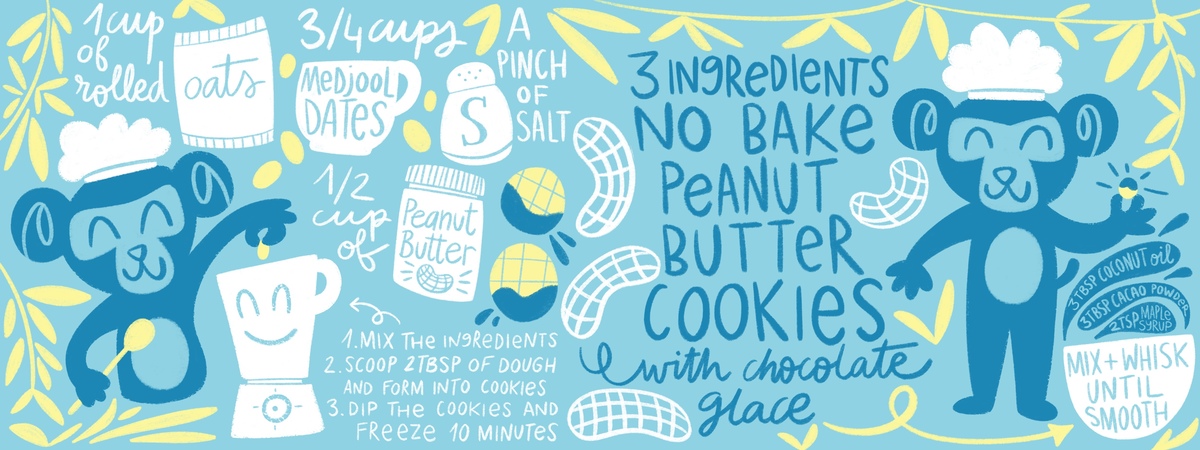 1 cup
of
rolled
oats
3/4 cups
Medjool
Dates
A
pinch
of
salt
S
1/2
cup
of
Peanut
Butter
1. Mix the ingredients
2. Scoop 2Tbsp of dough
and form into cookies
3. Dip the cookies and
freeze 10 minutes
3 ingredients
No Bake
Peanut
Butter
Cookies
with chocolate
glace
3Tbsp coconut oil
3Tbsp cacao powder
2Tsp maple
syrup
Mix + whisk
until
smooth